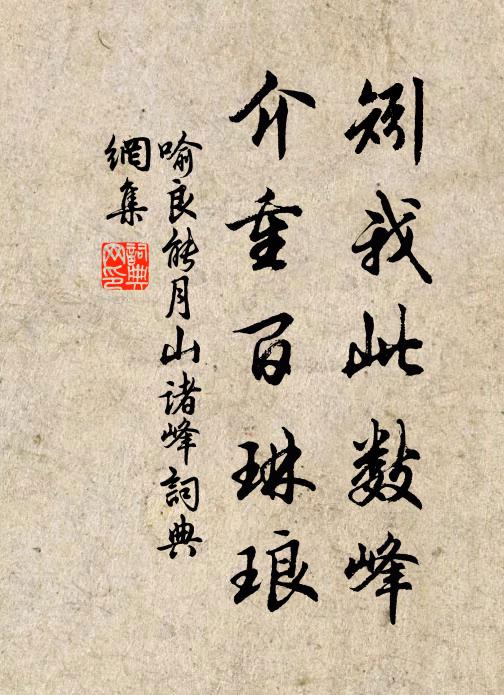 矧我此数峰
介重百琳琅
喻良能月山诸峰詞典
網集
詞典
网印